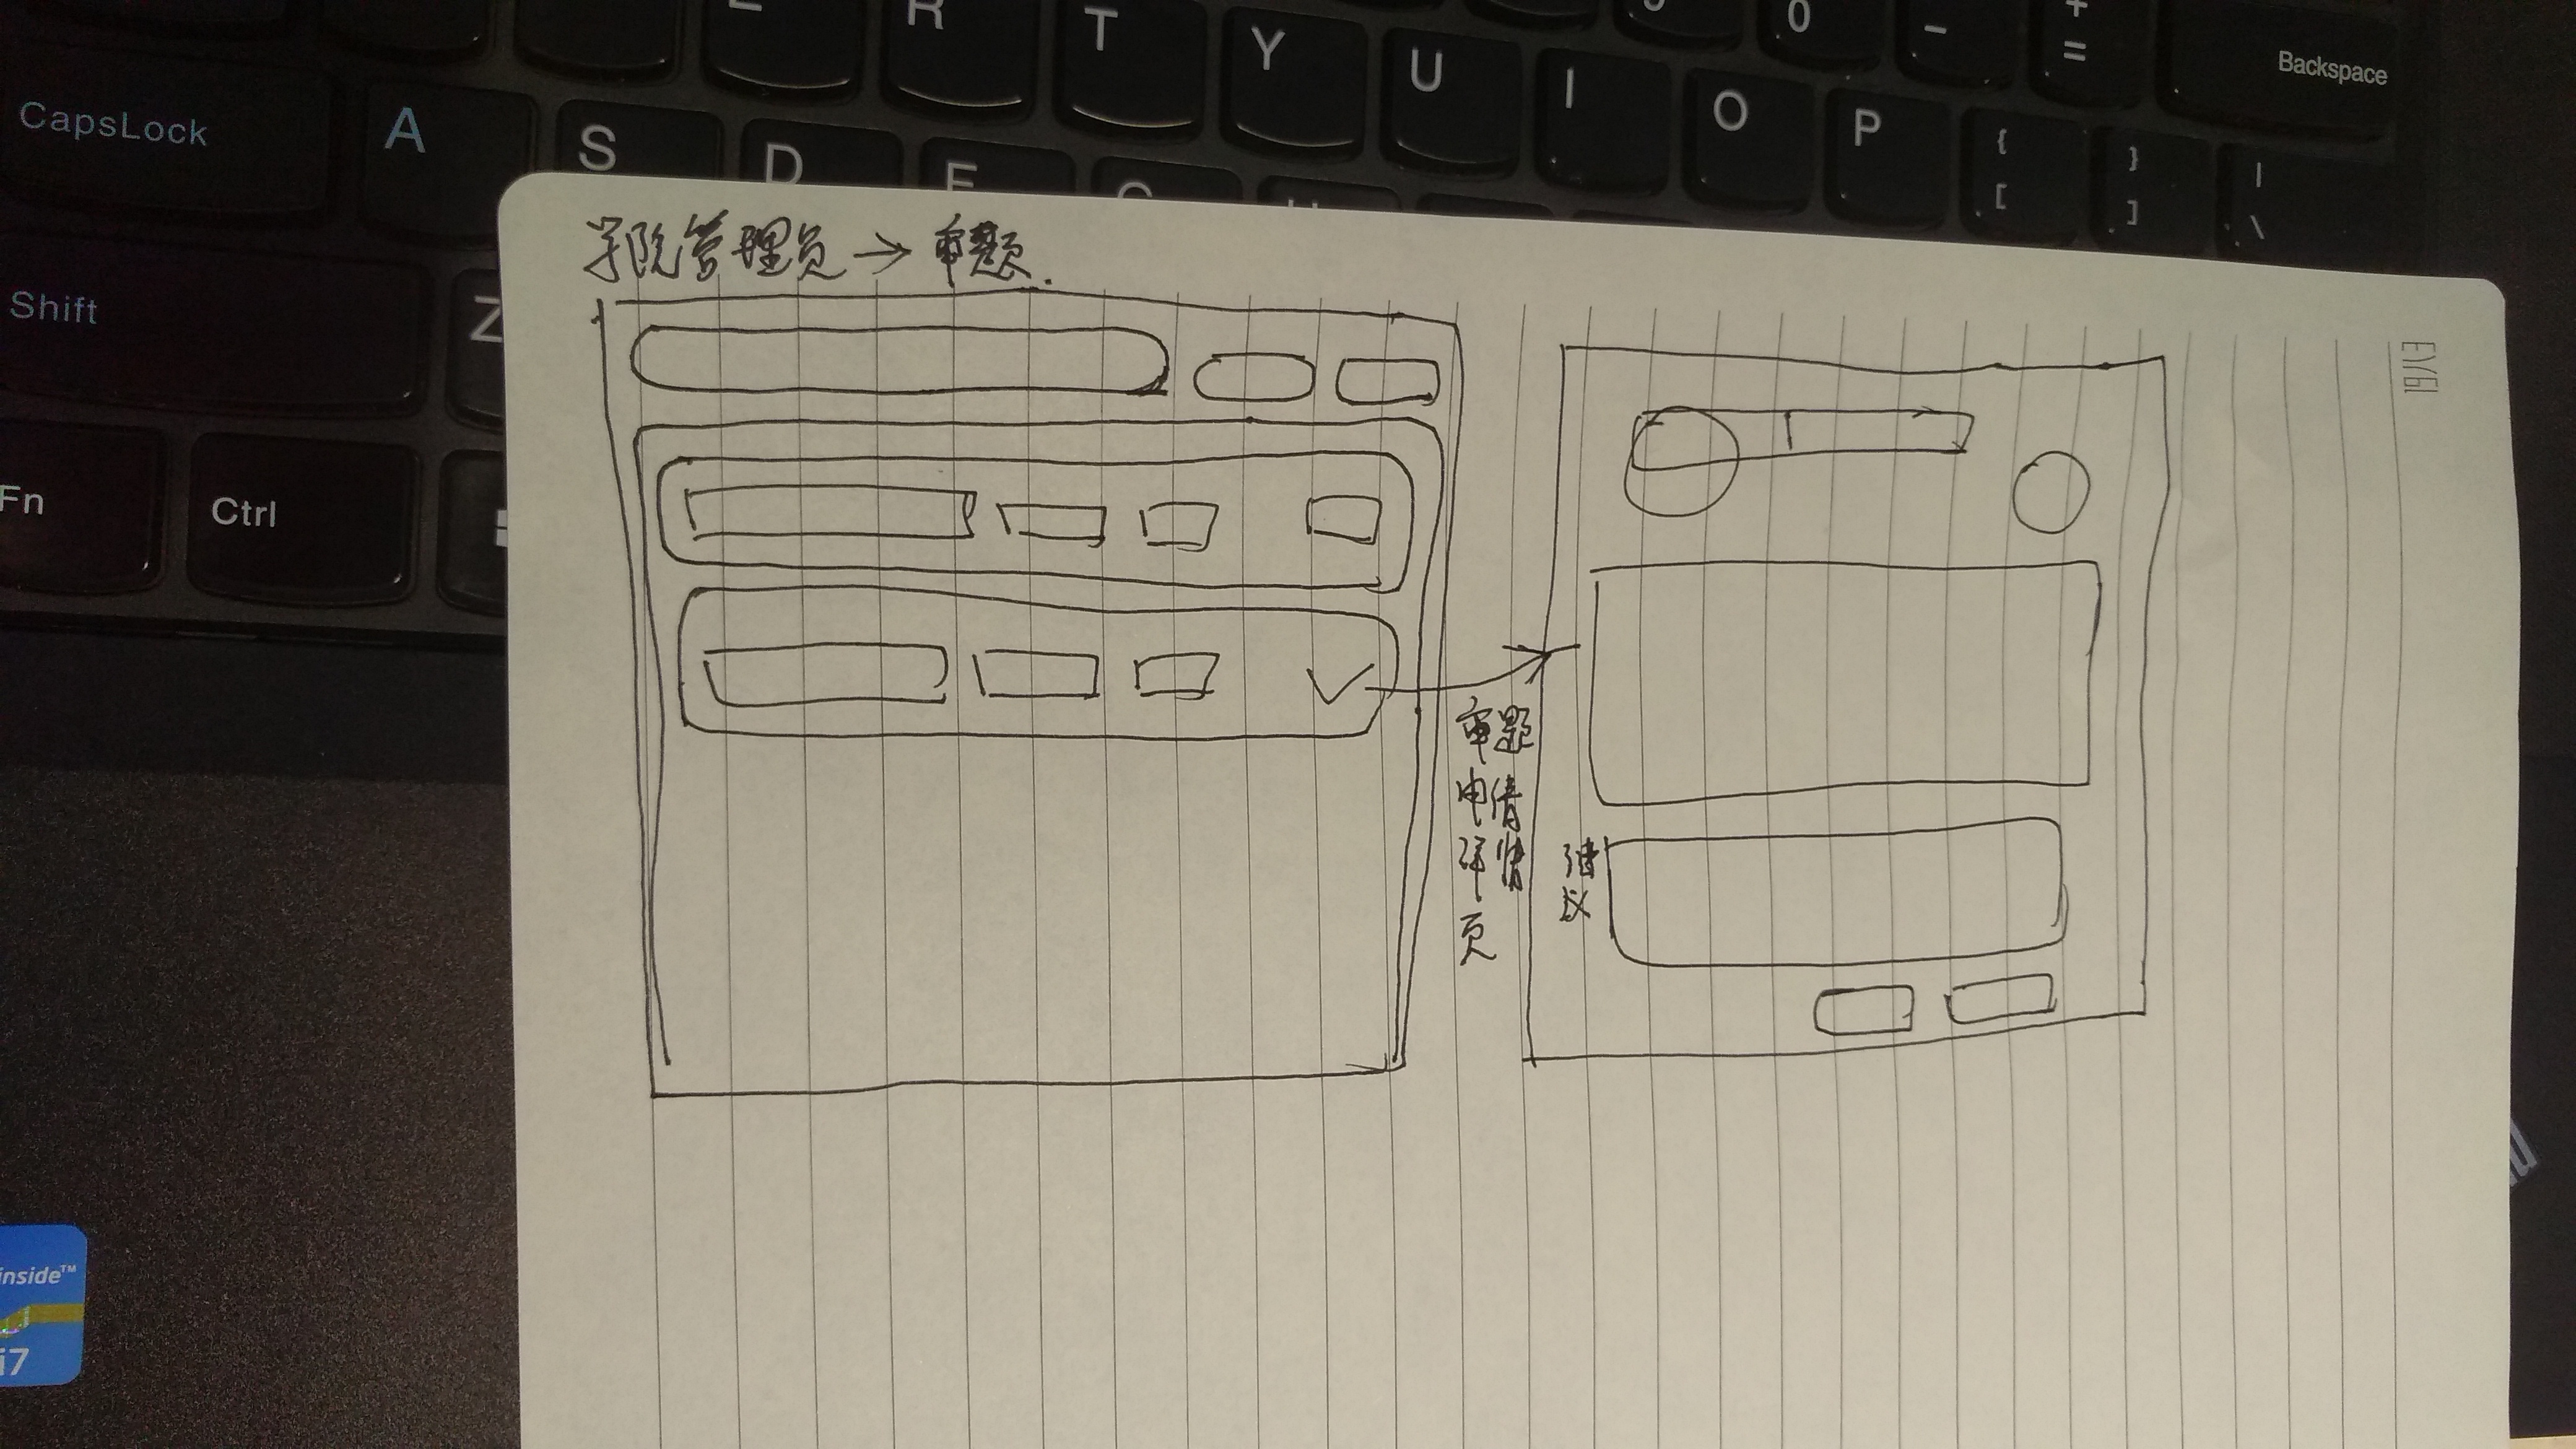 E R T Y U I O P - + =
Backspace
CapsLock A S D
{ [ } ] | \
Shift Z
Fn Ctrl
学院管理员→审题.
审题
申请
详情
页
建
议
inside™
i7